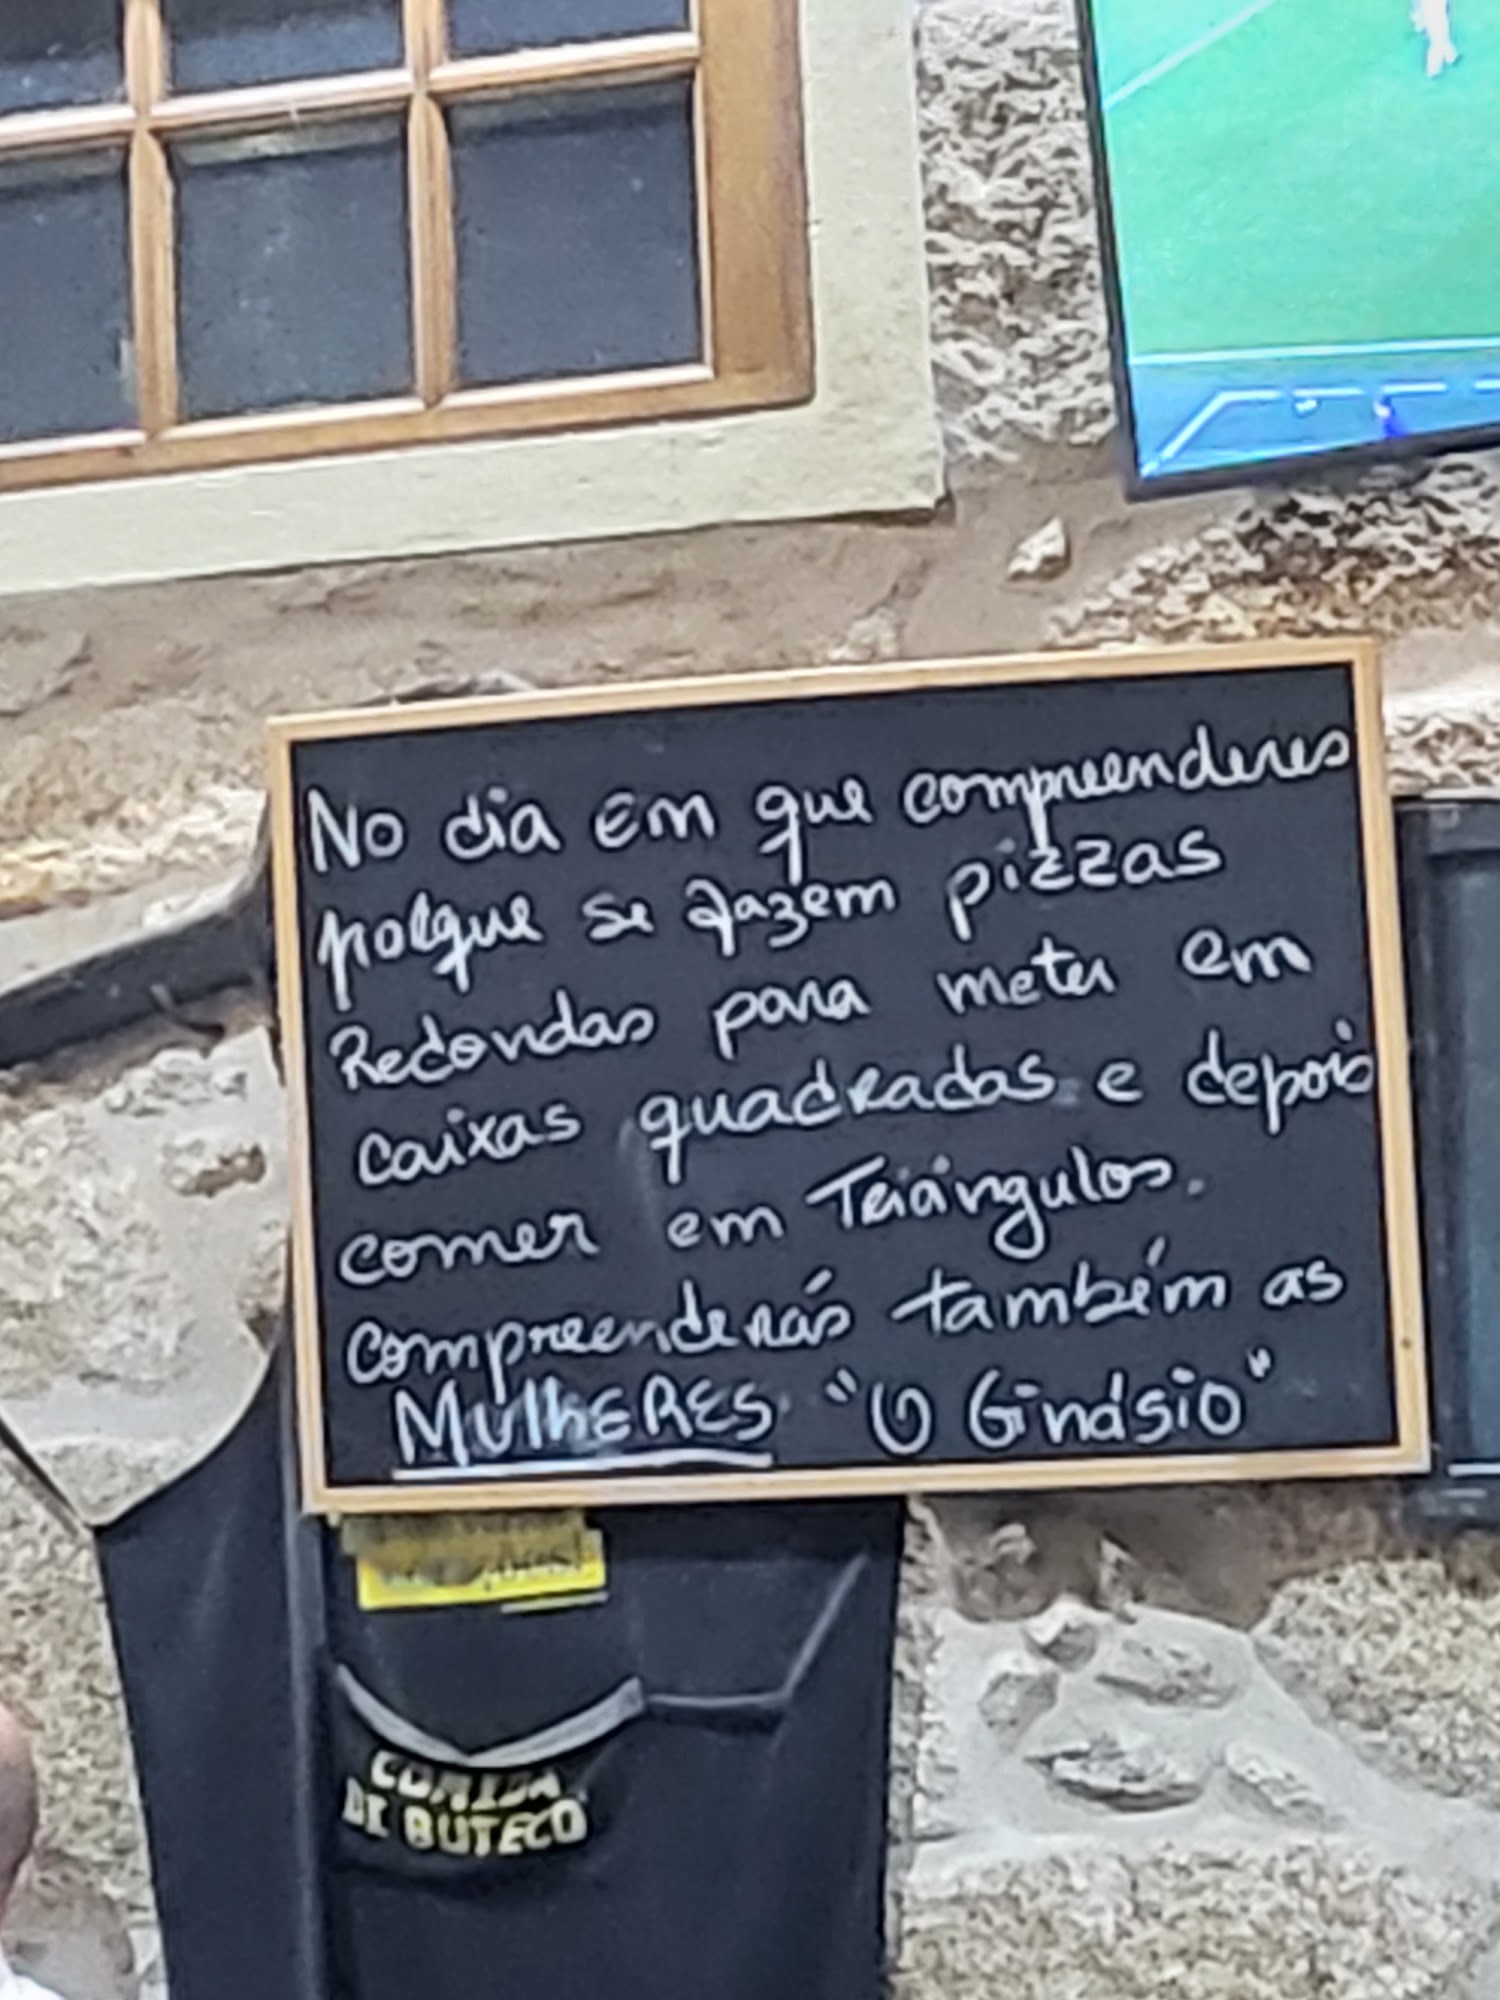 No dia em que compreenderes
porque se fazem pizzas
Redondas para meter em
caixas quadradas e depois
comer em Triángulos.
compreenderás também as
MulhERES "O Ginásio"
COMIDA
DE BUTECO